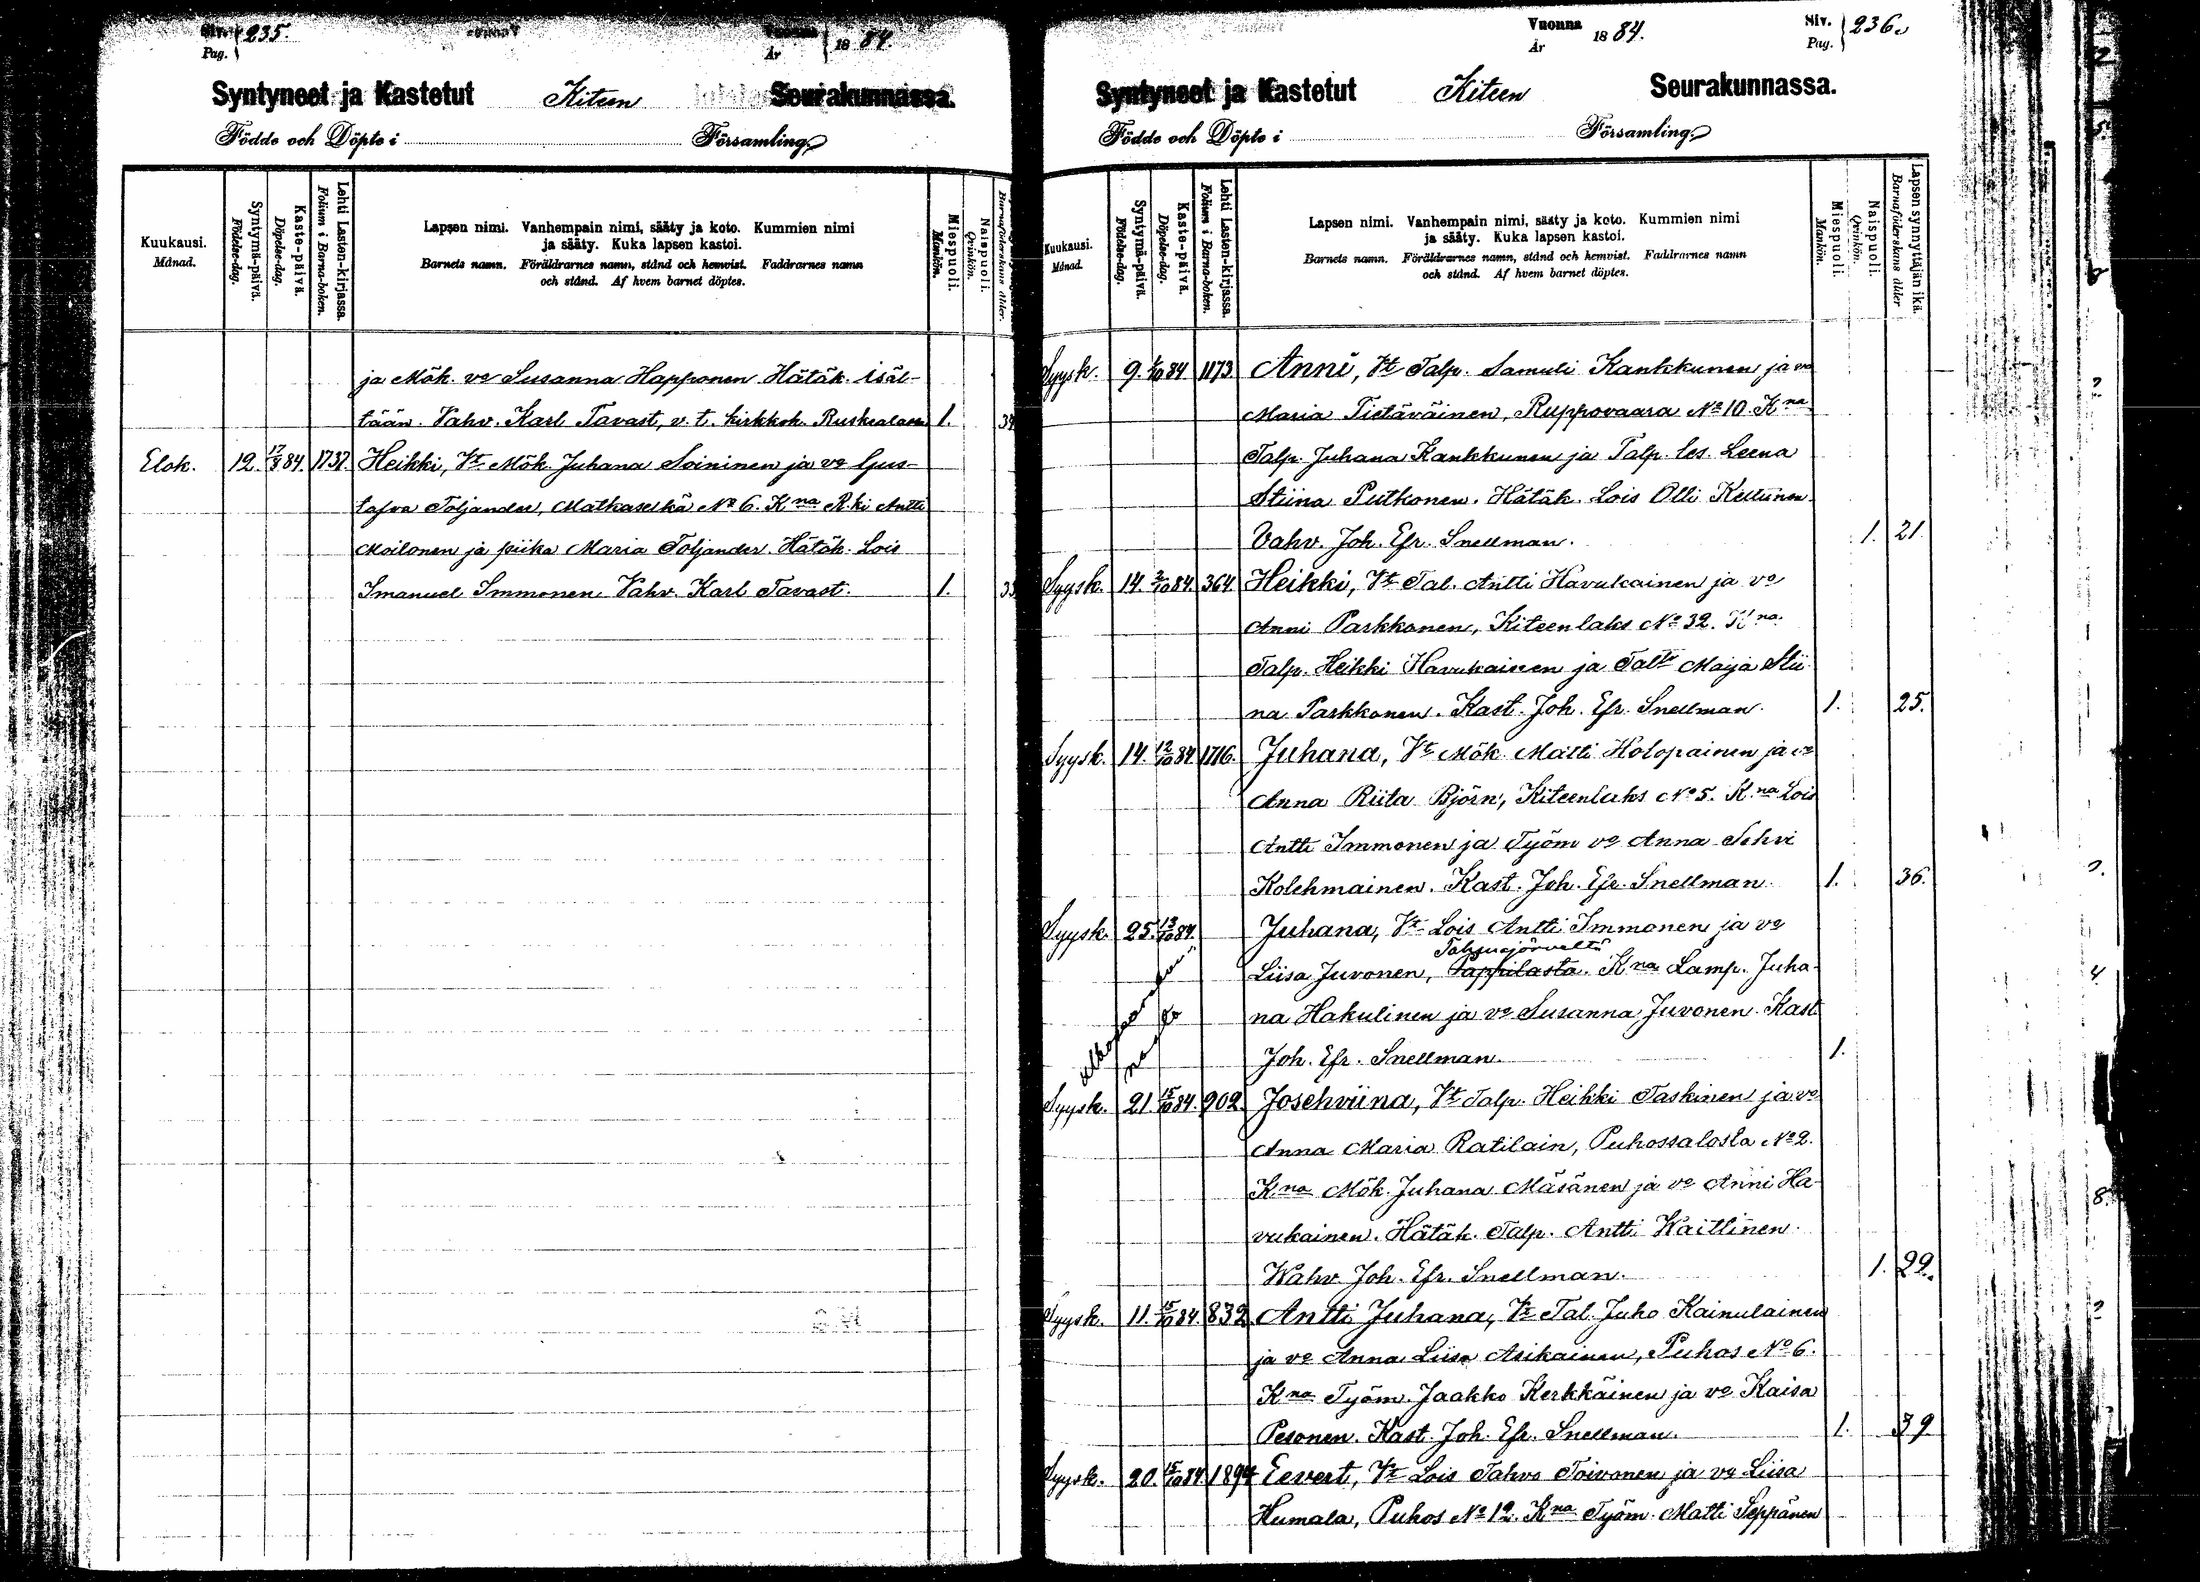 Siv. Pag. 235.
Vuonna År 1884.
Syntyneet ja Kastetut Kiteen Seurakunnassa.
Födde och Döpte i Församling
Kuukausi. Månad.
Syntymä-päivä. Födelse-dag.
Kaste-päivä. Döpelse-dag.
Lehti Lasten-kirjassa. Folium i Barna-boken.
Lapsen nimi. Vanhempain nimi, sääty ja koto. Kummien nimi
ja sääty. Kuka lapsen kastoi.
Barnets namn. Föräldrarnes namn, stånd och hemvist. Faddrarnes namn
och stånd. Af hvem barnet döptes.
Miespuoli. Mankön.
Naispuoli. Qvinkön.
Barnaföderskans ålder.
ja Mök. vo Susanna Happonen Hätäk. isäl-
tään. Vahv. Karl Tavast, v. t. kirkkoh. Ruskealassa 1. 34
Elok. 12. 17/8 84. 1737. Heikki, Vt Mök. Juhana Soininen ja vo Gus-
tafva Toljander, Matkaselkä No 6. Kna R.ki Antti
Moilonen ja piika Maria Toljander. Hätäk. Lois
Imanuel Immonen. Vahv. Karl Tavast. 1. 33
Siv. Pag. 236.
Vuonna År 1884.
Syntyneet ja Kastetut Kiteen Seurakunnassa.
Födde och Döpte i Församling
Kuukausi. Månad.
Syntymä-päivä. Födelse-dag.
Kaste-päivä. Döpelse-dag.
Lehti Lasten-kirjassa. Folium i Barna-boken.
Lapsen nimi. Vanhempain nimi, sääty ja koto. Kummien nimi
ja sääty. Kuka lapsen kastoi.
Barnets namn. Föräldrarnes namn, stånd och hemvist. Faddrarnes namn
och stånd. Af hvem barnet döptes.
Miespuoli. Mankön.
Naispuoli. Qvinkön.
Lapsen synnyttäjän ikä. Barnaföderskans ålder
Syysk. 9. 1/10 84 1173 Anni, Vt Talp. Samuli Kankkunen ja vo
Maria Tietäväinen, Ruppovaara No 10. Kna
Talp. Juhana Kankkunen ja Talp. les. Leena
Stiina Putkonen. Hätäk. Lois Olli Kettunen.
Vahv. Joh. Efr. Snellman. 1. 21.
Syysk. 14. 2/10 84. 364 Heikki, Vt Tal. Antti Havukainen ja vo
Anni Parkkonen, Kiteenlaks No 32. Kna
Talp. Heikki Havukainen ja Talt Maija Stii
na Parkkonen. Kast. Joh. Efr. Snellman. 1. 25.
Syysk. 14. 12/10 84 1716. Juhana, Vt Mök. Matti Holopainen ja vo
Anna Riita Björn, Kiteenlaks No 5. Kna Lois
Antti Immonen ja Työm vo Anna Sohvi
Kolehmainen. Kast. Joh. Efr. Snellman. 1. 36.
Syysk. 25. 13/10 84. Juhana, Vt Lois Antti Immonen ja vo
Tohmajärveltä
Liisa Juvonen, Pappilasta. Kna Lamp. Juha-
na Hakulinen ja vo Susanna Juvonen. Kast
Joh. Efr. Snellman. 1.
Syysk. 21. 15/10 84. 902. Josehviina, Vt Talp. Heikki Taskinen ja vo
Anna Maria Ratilain, Puhossalosta No 2.
Kna Mök. Juhana Mäsänen ja vo Anni Ha-
vukainen. Hätäk. Talp. Antti Waittinen.
Wahv. Joh. Efr. Snellman. 1. 22.
Syysk. 11. 15/10 84. 832 Antti Juhana, Vt Tal. Juho Kainulainen
ja vo Anna Liisa Asikainen, Puhos No 6.
Kna Työm. Jaakko Kerkkäinen ja vo Kaisa
Pesonen. Kast. Joh. Efr. Snellman. 1. 39
Syysk. 20. 15/10 84. 1894 Eevert, Vt Lois Tahvo Toivonen ja vo Liisa
Humala, Puhos No 12. Kna Työm. Matti Seppänen